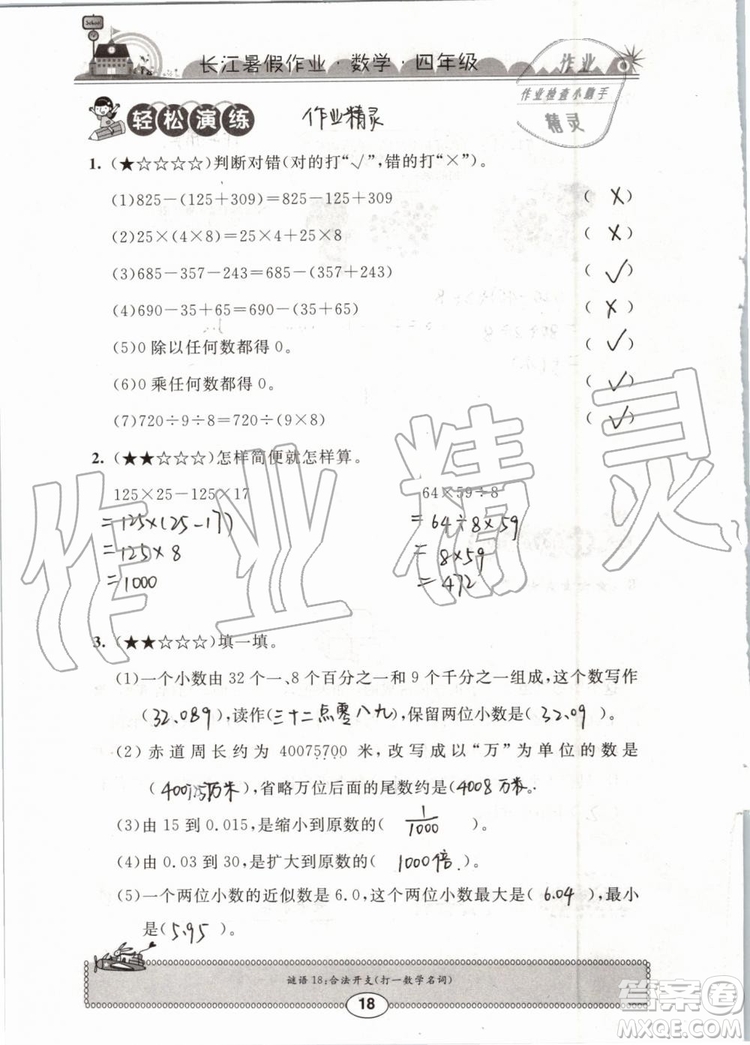 School
长江暑假作业·数学·四年级
作业
作业检查小助手
精灵
轻松演练 作业精灵
1. (★☆☆☆☆)判断对错(对的打“√”,错的打“×”)。
(1)825-(125+309)=825-125+309 ( × )
(2)25×(4×8)=25×4+25×8 ( × )
(3)685-357-243=685-(357+243) ( √ )
(4)690-35+65=690-(35+65) ( × )
(5)0 除以任何数都得 0。 ( √ )
(6)0 乘任何数都得 0。 ( √ )
(7)720÷9÷8=720÷(9×8) ( √ )
2. (★★☆☆☆)怎样简便就怎样算。
125×25-125×17 64×59÷8
=125×(25-17) =64÷8×59
=125×8 =8×59
=1000 =472
作业精灵
3. (★★☆☆☆)填一填。
(1)一个小数由 32 个一、8 个百分之一和 9 个千分之一组成,这个数写作
(32.089),读作(三十二点零八九),保留两位小数是(32.09)。
(2)赤道周长约为 40075700 米,改写成以“万”为单位的数是
(4007.57万米),省略万位后面的尾数约是(4008万米)。
(3)由 15 到 0.015,是缩小到原数的( 1/1000 )。
(4)由 0.03 到 30,是扩大到原数的(1000倍)。
(5)一个两位小数的近似数是 6.0,这个两位小数最大是(6.04),最小
是(5.95)。
谜语 18:合法开支(打一数学名词)
18
答案圈
MXQE.COM